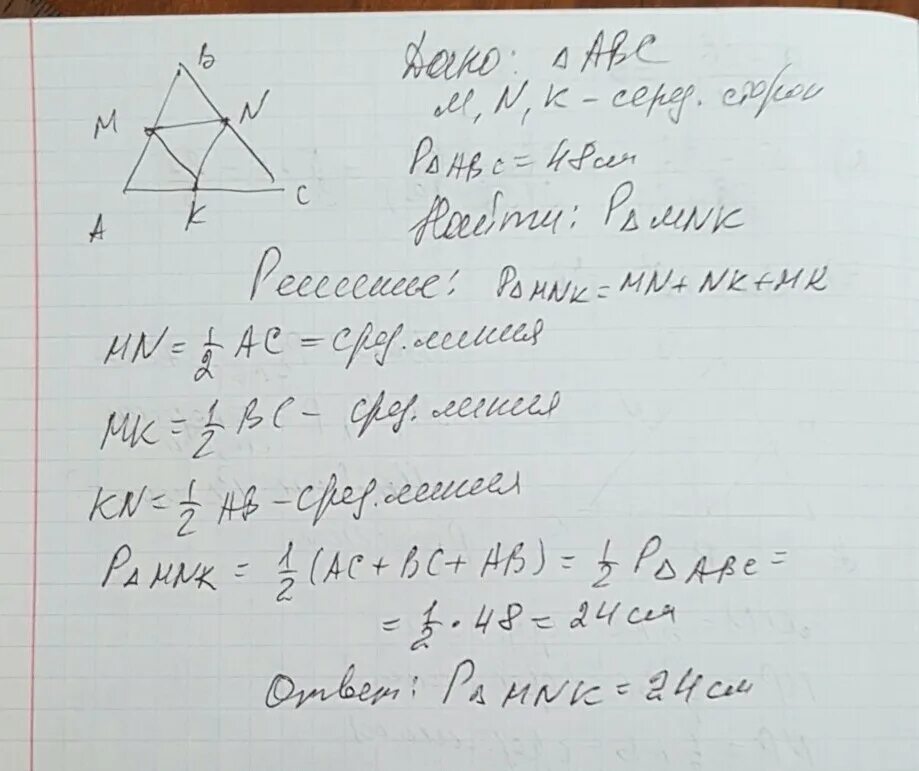 B
M
N
A
K
C
Дано: △ ABC
M, N, K – серед. сторон
P△ ABC = 48 см
Найти: P△ MNK
Решение: P△ MNK = MN + NK + MK
MN = 1/2 AC = сред. линия
MK = 1/2 BC – сред. линия
KN = 1/2 AB – сред. линия
P△ MNK = 1/2 (AC + BC + AB) = 1/2 P△ ABC =
= 1/2 · 48 = 24 см
Ответ: P△ MNK = 24 см